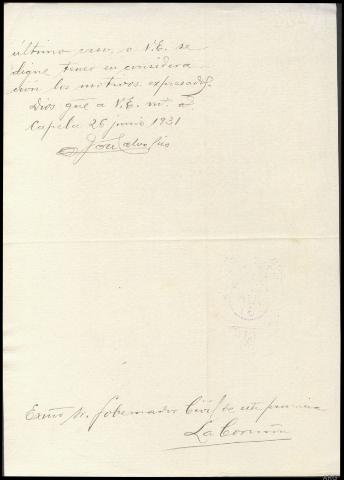 último caso, o V.E. se
digne tener en considera
cion los motivos expresados.
Dios gue a V.E. m. a
Capela 26 junio 1931
José Calvo
Exmo Sr. Gobernador Civil de esta provincia
La Coruña